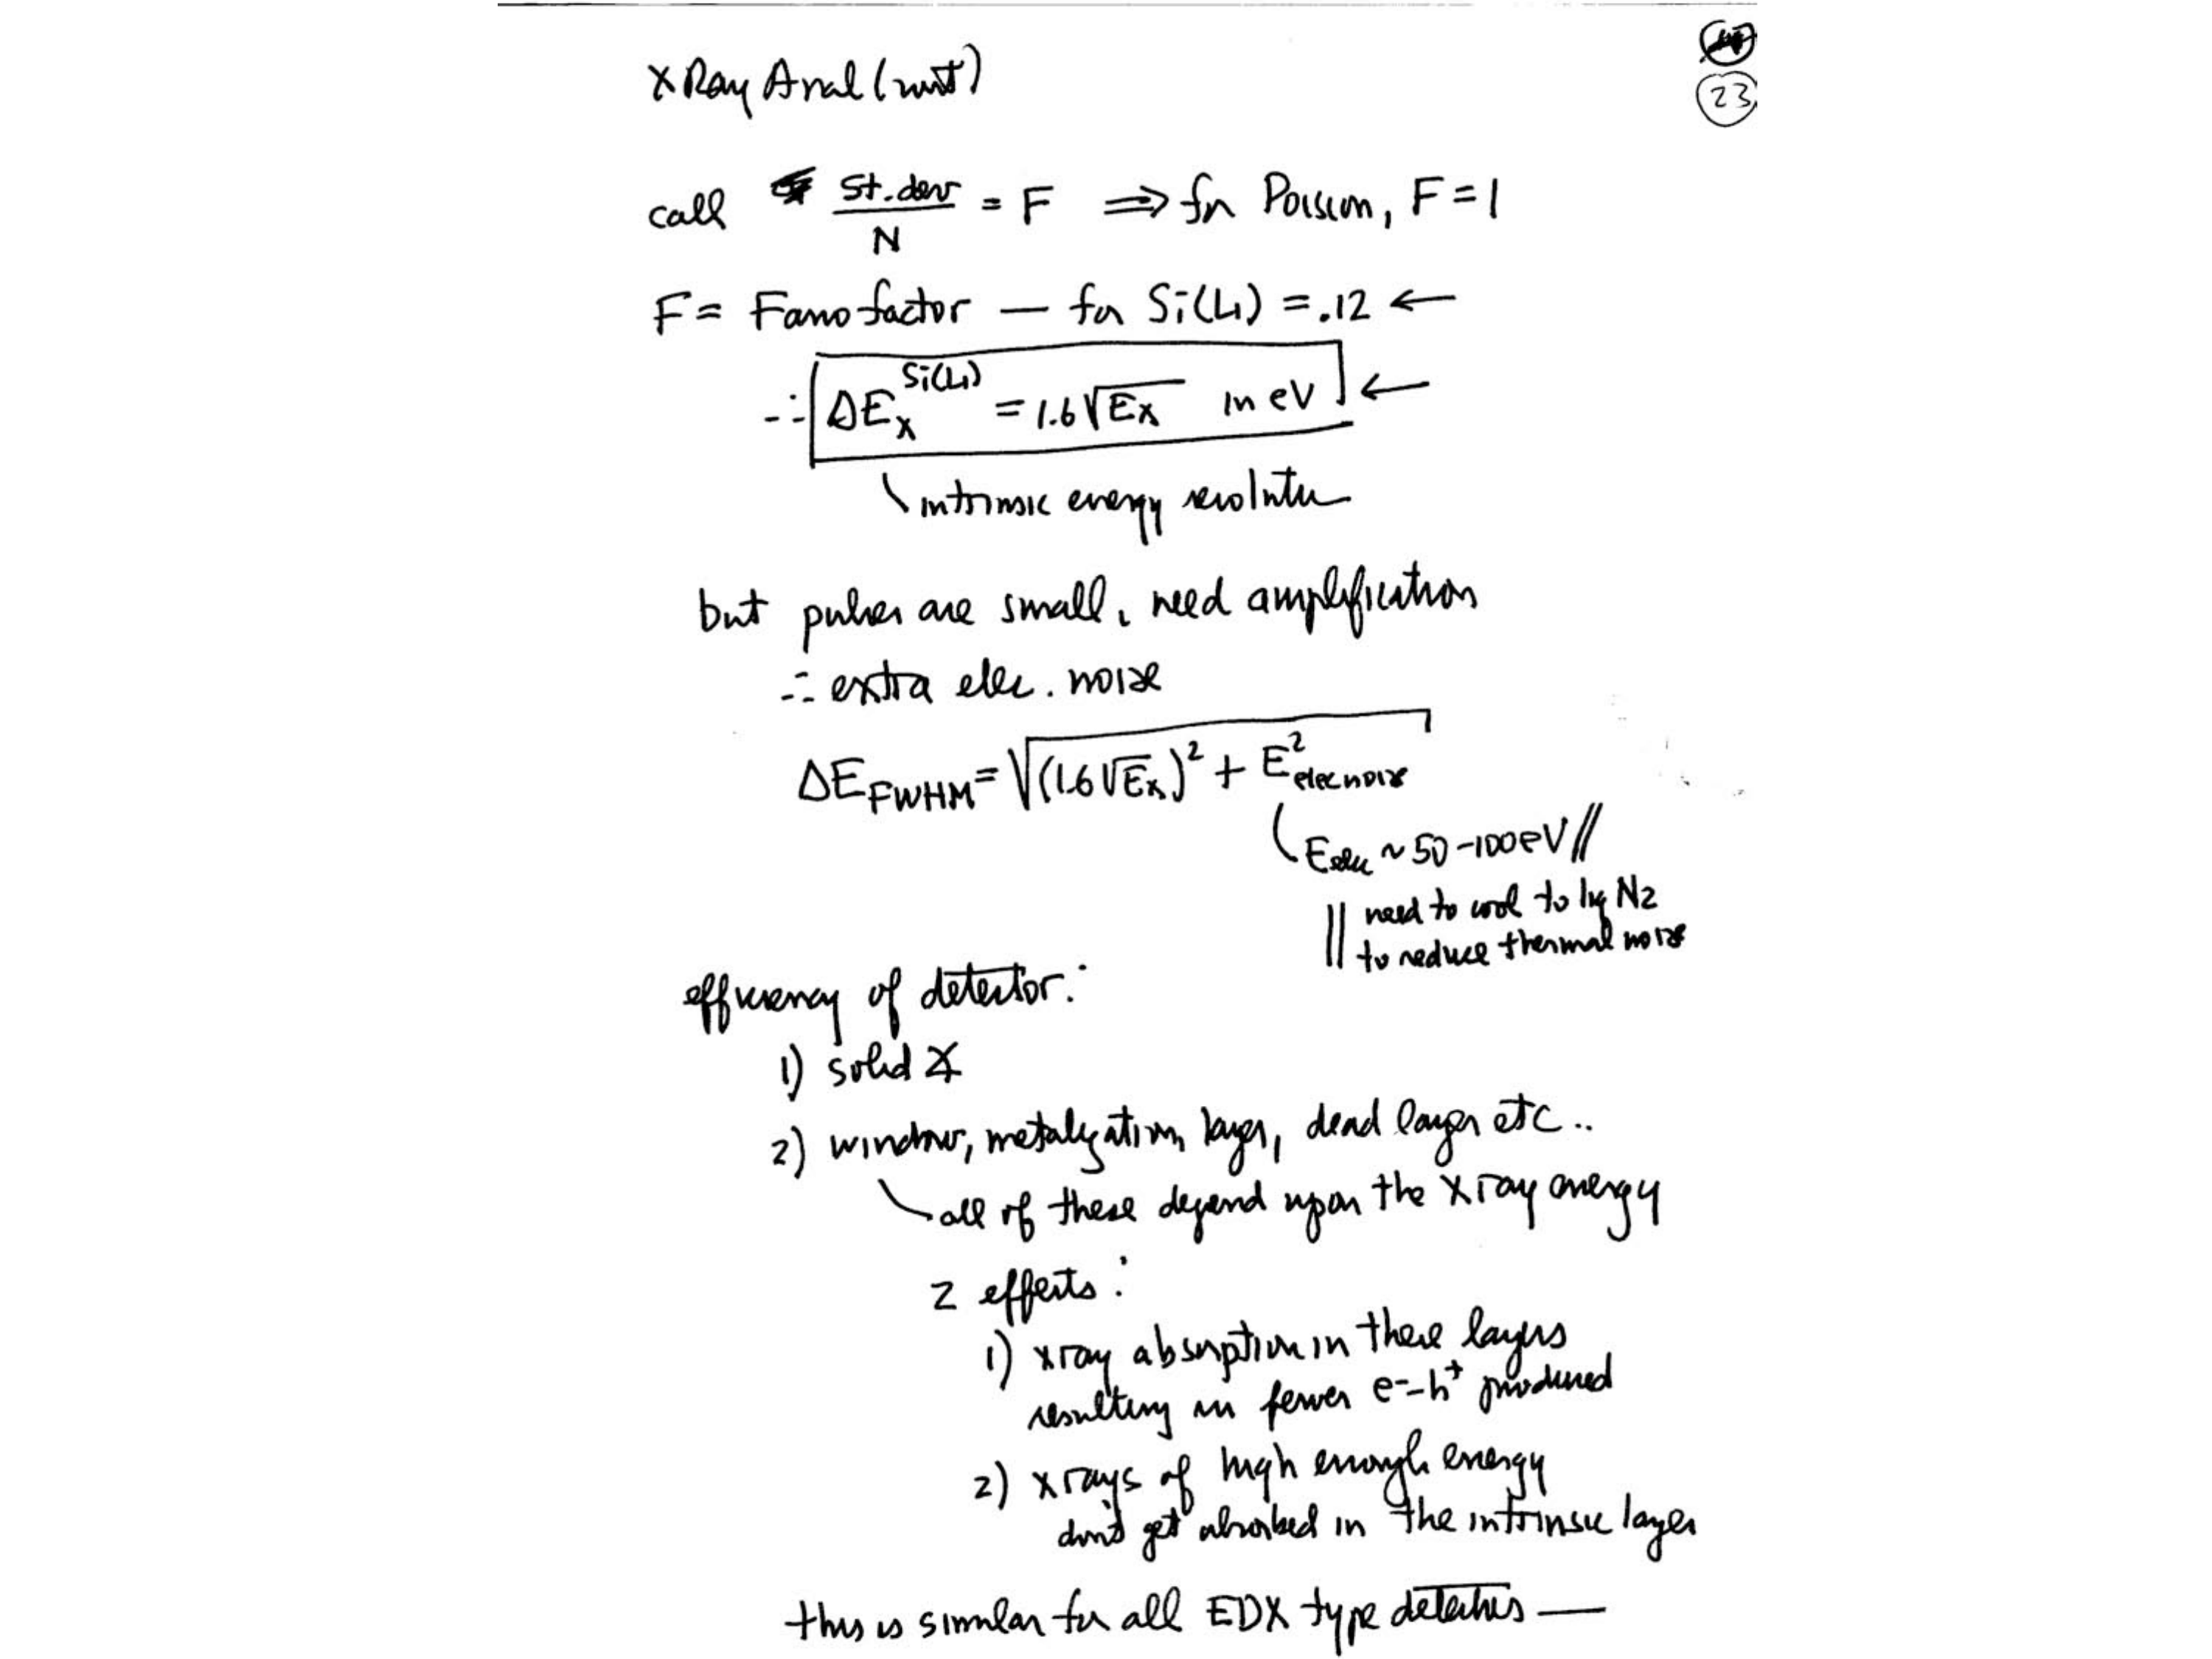 X Ray Anal (cont)
23
call St. dev / N = F ⇒ for Poisson, F = 1
F = Fano factor — for Si(Li) = .12 ←
∴ ΔEx^Si(Li) = 1.6√Ex in eV ←
intrinsic energy resolution
but pulses are small, need amplification
∴ extra elec. noise
ΔE_FWHM = √((1.6√Ex)² + E²_elec noise)
E_elec ~ 50-100eV //
|| need to cool to liq N2
|| to reduce thermal noise
efficiency of detector:
1) solid ∡
2) window, metalyzation layer, dead layer etc..
all of these depend upon the X ray energy
2 effects:
1) xray absorption in these layers
resulting in fewer e⁻-h⁺ produced
2) x rays of high enough energy
don't get absorbed in the intrinsic layer
this is similar for all EDX type detectors —